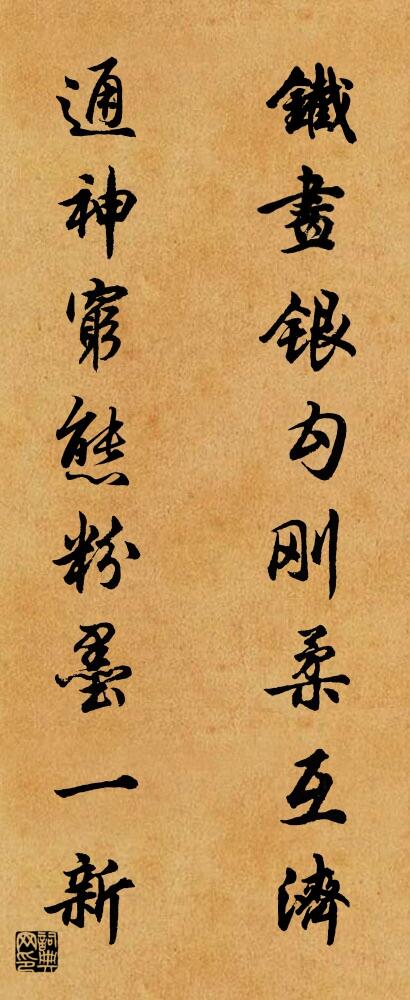 鐵畫銀勾剛柔互濟
通神窮態粉墨一新
詞典
网印